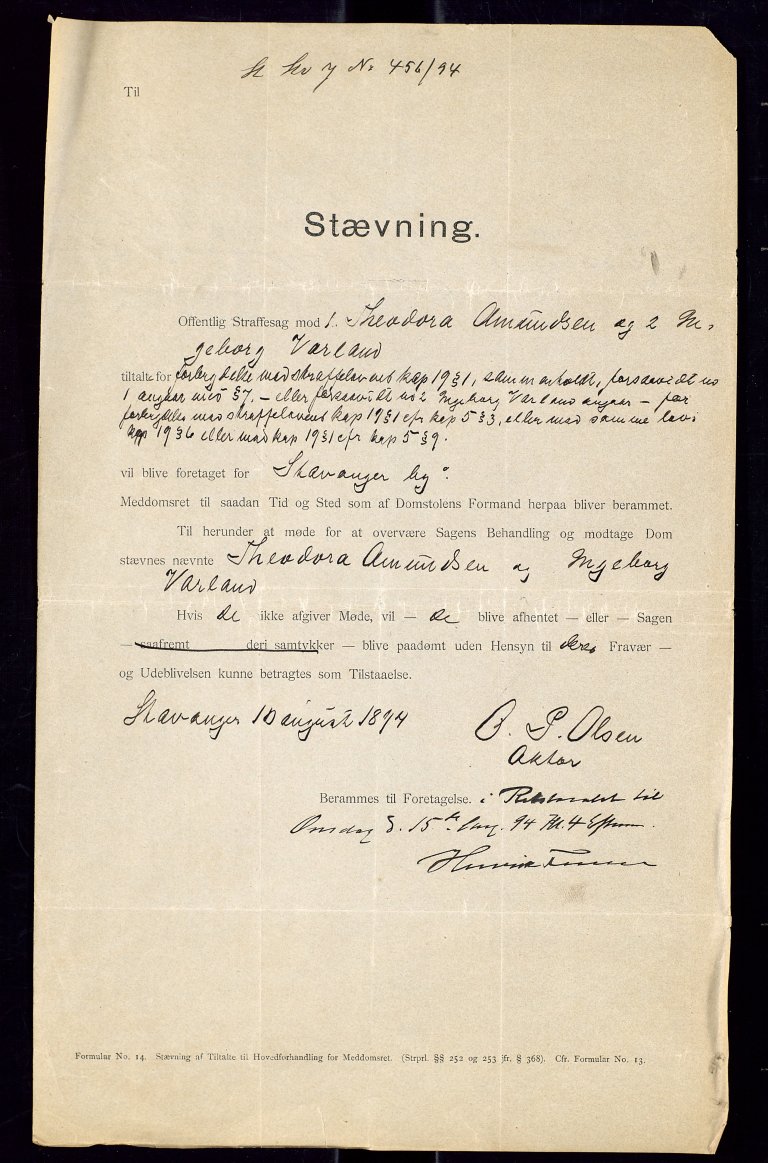 No 456/94
Til
Stævning.
Offentlig Straffesag mod 1. Theodora Amundsen og 2 In-
geborg Varland
tiltalt for forbrydelse mod straffelovens kap 19 § 1, sammenholdt, forsaavidt no
1 angaar med § 7, - eller forsaavidt no 2 Ingeborg Varland angaar - for
forbrydelse mod straffelovens kap 19 § 1 cfr kap 5 § 3, eller mod samme lovs
kap 19 § 6 eller mod kap 19 § 1 cfr kap 5 § 9.
vil blive foretaget for Stavanger by
Meddomsret til saadan Tid og Sted som af Domstolens Formand herpaa bliver berammet.
Til herunder at møde for at overvære Sagens Behandling og modtage Dom
stævnes nævnte Theodora Amundsen og Ingeborg
Varland
Hvis de ikke afgiver Møde, vil — de blive afhentet — eller — Sagen
— saafremt deri samtykker — blive paadømt uden Hensyn til deres Fravær —
og Udeblivelsen kunne betragtes som Tilstaaelse.
Stavanger 10 august 1894
O. P. Olsen
Aktor
Berammes til Foretagelse. i Retslokalet til
Onsdag d. 15de Aug. 94 Kl. 4 Efterm.
Formular No. 14. Stævning af Tiltalte til Hovedforhandling for Meddomsret. (Strprl. §§ 252 og 253 jfr. § 368). Cfr. Formular No. 13.